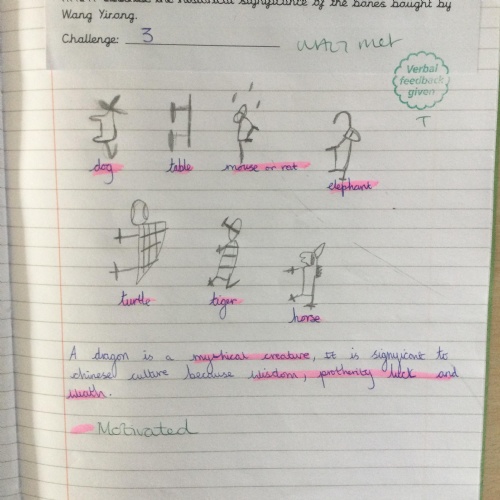 describe the historical significance of the bones bought by
Wang Yirong.
Challenge: 3
WALT met
Verbal
feedback
given
T
dog
table
mouse or rat
elephant
turtle
tiger
horse
A dragon is a mythical creature, It is signyicant to
chinese culture because wisdom, protherity luck and
wealth.
Motivated